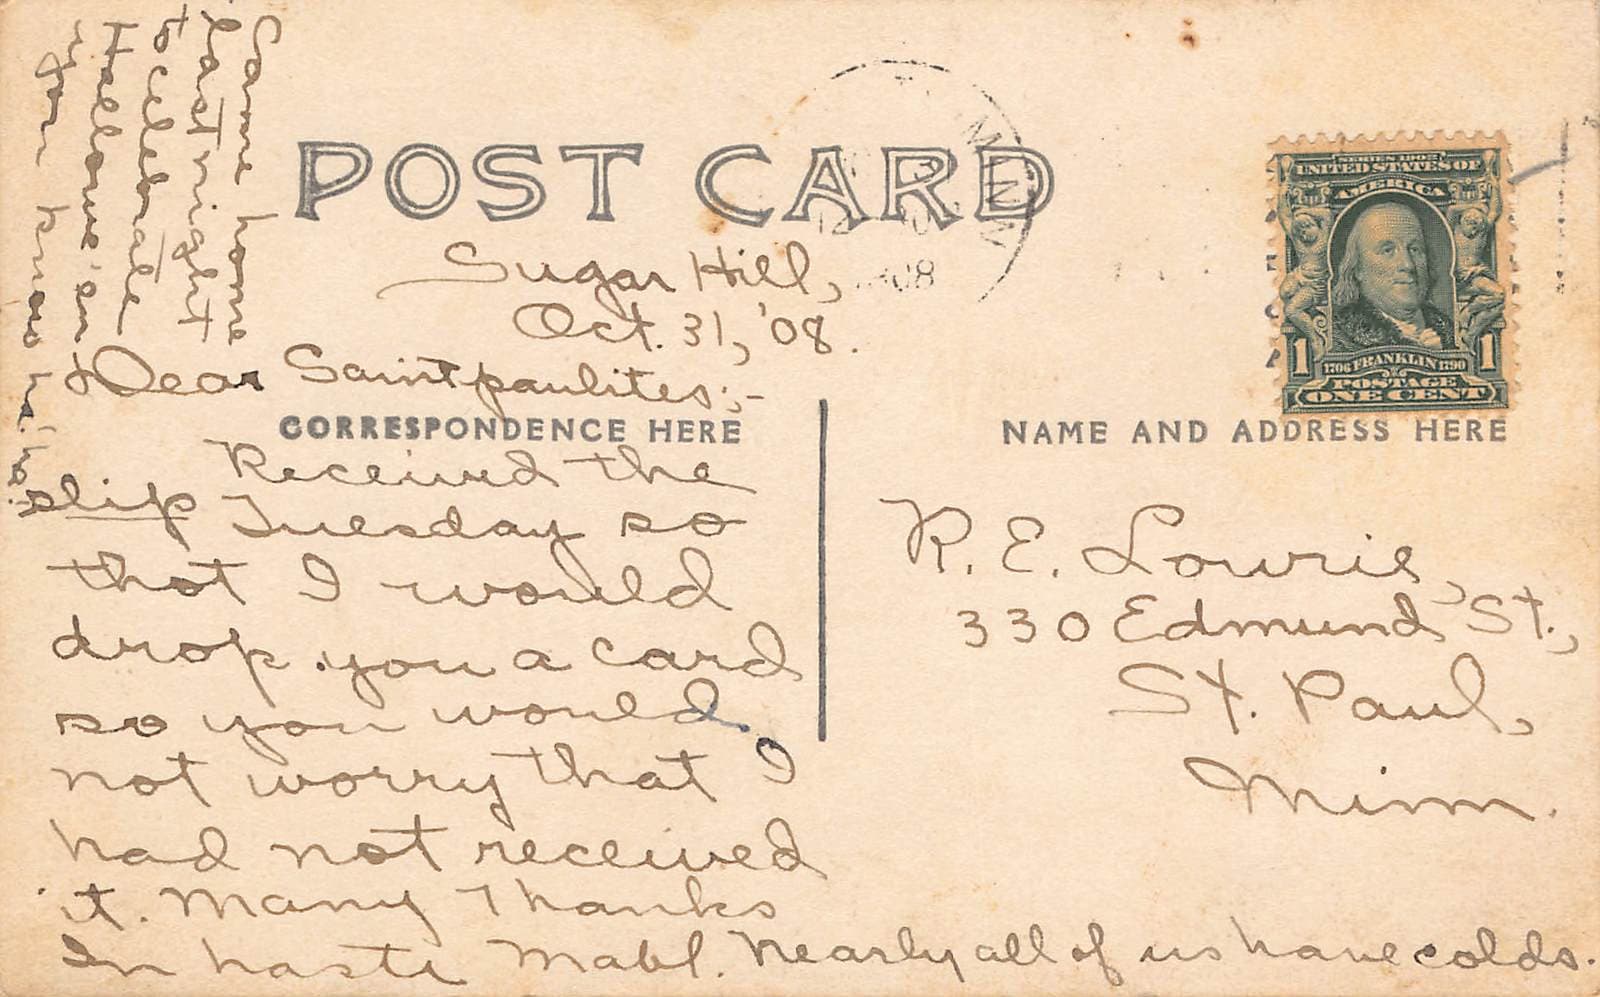 POST CARD
Sugar Hill,
Oct. 31, '08.
Dear Saintpaulites:-
CORRESPONDENCE HERE
Received the
slip Tuesday so
that I would
drop you a card
so you would
not worry that I
had not received
it. Many Thanks
In haste Mabl. Nearly all of us have colds.
Came home
last night
to cilebrate
Hallowe'en
you know ha! ha!
MINN
1908
SERIES 1902
UNITED STATES OF
AMERICA
1 1706 FRANKLIN 1790 1
POSTAGE
ONE CENT
NAME AND ADDRESS HERE
R. E. Lowrie,
330 Edmund St.,
St. Paul,
Minn.